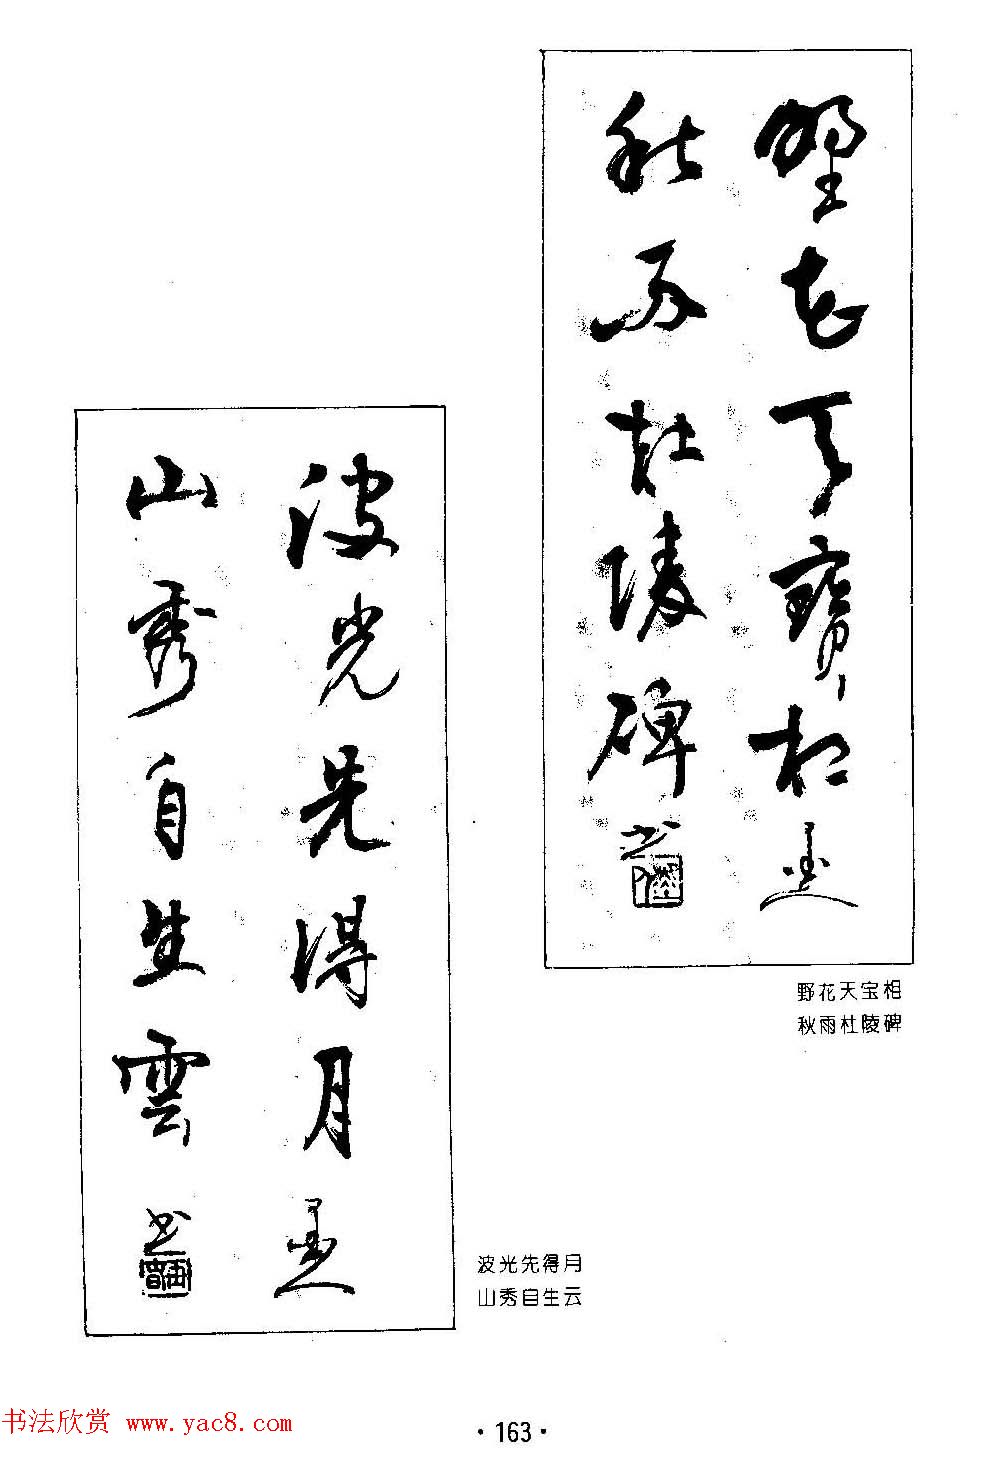 野花天寶相
秋雨杜陵碑
书
野花天宝相
秋雨杜陵碑
波光先得月
山秀自生雲
书
波光先得月
山秀自生云
书法欣赏 www.yac8.com
·163·